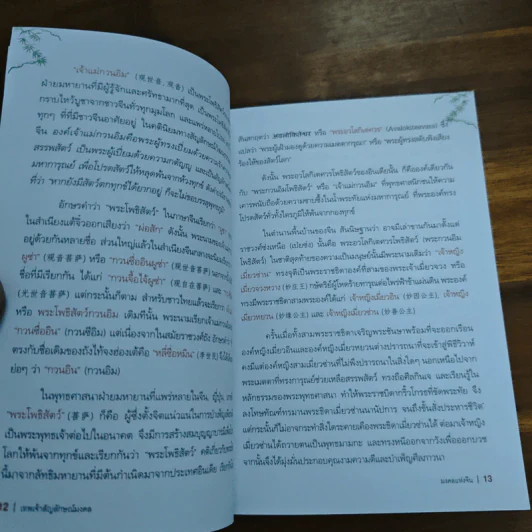 "เจ้าแม่กวนอิม" (觀世音, 观音) เป็นพระโพธิสัตว์
ฝ่ายมหายานที่มีผู้รู้จักและศรัทธามากที่สุด เป็นที่
กราบไหว้บูชาจากชาวจีนทั่วทุกมุมโลก และแพร่หลายไป
ทุกๆ ที่ที่มีชาวจีนอาศัยอยู่ ในคตินิยมทางสัญลักษณ์
จีน องค์เจ้าแม่กวนอิมคือพระผู้เปี่ยมด้วยความ
สรรพสัตว์ เป็นพระผู้เปี่ยมด้วยความกตัญญู และเป็น
มหาการุณย์ เพื่อโปรดสัตว์ให้หลุดพ้นจากห้วงทุกข์
ที่ว่า "หากยังมีสัตว์ตกทุกข์ได้ยากอยู่ ก็จะไม่ขอบรรลุพุทธภูมิ"
อักษรคำว่า "พระโพธิสัตว์" ในภาษาจีนเรียกว่า
ในสำเนียงแต้จิ๋วออกเสียงว่า "ผ่อสัก" ดังนั้น พระนาม
อยู่ด้วยกันหลายชื่อ ส่วนใหญ่แล้วในสำเนียงจีนกลางจะนิยม
ผู่ซ่า" (觀世音菩萨) หรือ "กวนซื่ออินผู่ซ่า"
ชื่อที่มีเรียกกัน ได้แก่ "กวนจื้อไจ้ผู่ซ่า" (观自在菩萨) และ
(光世音菩萨) แต่กระนั้นก็ตาม สำหรับชาวไทยแล้วจะเรียก
หรือ พระโพธิสัตว์กวนอิม เดิมทีนั้น พระนามเรียกเจ้าแม่
"กวนซื่ออิน" (กวนซีอิม) แต่เนื่องจากในสมัยราชวงศ์ถัง อักษร
ตรงกับชื่อเดิมของถังไท้จงฮ่องเต้คือ "หลี่ซื่อหมิน" (李世民)
ย่อๆ ว่า "กวนอิน" (กวนอิม)
ในพุทธศาสนาฝ่ายมหายานที่แพร่หลายในจีน ญี่ปุ่น
"พระโพธิสัตว์" (菩萨) ก็คือ ผู้ซึ่งตั้งจิตแน่วแน่ในการบำเพ็ญ
เป็นพระพุทธเจ้าต่อไปในอนาคต จึงมีการสร้างสมบุญญาบารมี
โลกให้พ้นจากทุกข์และเรียกกันว่า "พระโพธิสัตว์" คติเกี่ยวกับ
นี้มาจากลัทธิมหายานที่มีต้นกำเนิดมาจากประเทศอินเดีย
12 | เทพเจ้าสัญลักษณ์มงคล
สันสกฤตว่า หรือ "พระอวโลกิเตศวร" (Avalokitesvara) ซึ่ง
แปลว่า "พระผู้เฝ้ามองดูด้วยความเมตตากรุณา" หรือ "พระผู้ทรงสดับฟังเสียง
ร้องไห้ของสัตว์โลก"
ดังนั้น พระอวโลกิเตศวรโพธิสัตว์ของอินเดียนั้น ก็คือองค์เดียวกัน
กับ "พระกวนอิมโพธิสัตว์" หรือ "เจ้าแม่กวนอิม" ที่พุทธศาสนิกชนให้ความ
เคารพนับถือด้วยความซาบซึ้งในน้ำพระทัยแห่งมหาการุณย์ ที่พระองค์ทรง
โปรดสัตว์ทั่วทั้งไตรภูมิให้พ้นจากกองทุกข์
ในตำนานพื้นบ้านของจีน สันนิษฐานว่า อาจมีเล่าขานกันมาตั้งแต่
ราชวงศ์ซ่งเหนือ (เป่ยซ่ง) นั้นคือ พระอวโลกิเตศวรโพธิสัตว์ (พระกวนอิม
โพธิสัตว์) ในชาติสุดท้ายของความเป็นมนุษย์นั้นมีพระนามเดิมว่า "เจ้าหญิง
เมี่ยวซ่าน" ทรงจุติเป็นพระราชธิดาองค์ที่สามของพระเจ้าเมี่ยวจวง หรือ
เมี่ยวจวงหวาง (妙庄王) กษัตริย์ผู้โหดร้ายทารุณต่อไพร่ฟ้าข้าแผ่นดิน พระองค์
ทรงมีพระราชธิดาสามพระองค์ก็ได้แก่ เจ้าหญิงเมี่ยวอิน (妙因公主) เจ้าหญิง
เมี่ยวหยวน (妙缘公主) และ เจ้าหญิงเมี่ยวซ่าน (妙善公主)
ครั้นเมื่อทั้งสามพระราชธิดาเจริญพระชันษาพร้อมที่จะออกเรือน
องค์หญิงเมี่ยวอินและองค์หญิงเมี่ยวหยวนต่างปรารถนาที่จะเข้าสู่พิธีวิวาห์
คงมีแต่องค์หญิงสามเมี่ยวซ่านที่ไม่พึงปรารถนาในสิ่งใดๆ นอกเหนือไปจาก
พระเมตตาที่ทรงการุณย์ช่วยเหลือสรรพสัตว์ ทรงถือศีลกินเจ และเรียนรู้ใน
หลักธรรมของพระพุทธศาสนา ทำให้พระราชบิดากริ้วโกรธที่ขัดพระทัย จึง
ลงโทษทัณฑ์ทรมานพระธิดาเมี่ยวซ่านนานัปการ จนถึงขั้นสั่งประหารชีวิต
แต่กระนั้นก็ไม่อาจกระทำสิ่งใดระคายเคืองพระธิดาเมี่ยวซ่านได้ ต่อมาเจ้าหญิง
เมี่ยวซ่านได้ถวายตนเป็นพุทธมามกะ และทรงหนีออกจากวังเพื่อออกบวช
จากนั้นจึงได้มุ่งมั่นประกอบคุณงามความดีและบำเพ็ญศีลภาวนา
มงคลแห่งจีน | 13